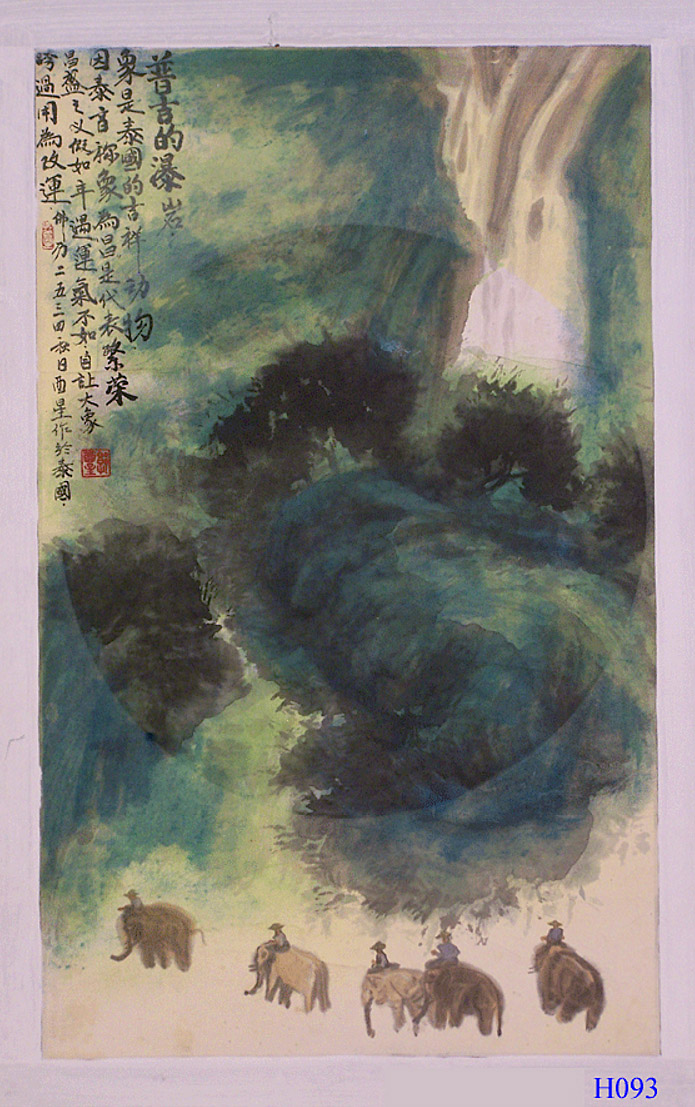 普吉的瀑岩.
象是泰國的吉祥动物.
因泰言称象為昌是代表繁荣
昌盛之义假如年遇運氣不如.自让大象
跨過用為改運.佛乃二五三四.秋日酉星作於泰國.
H093